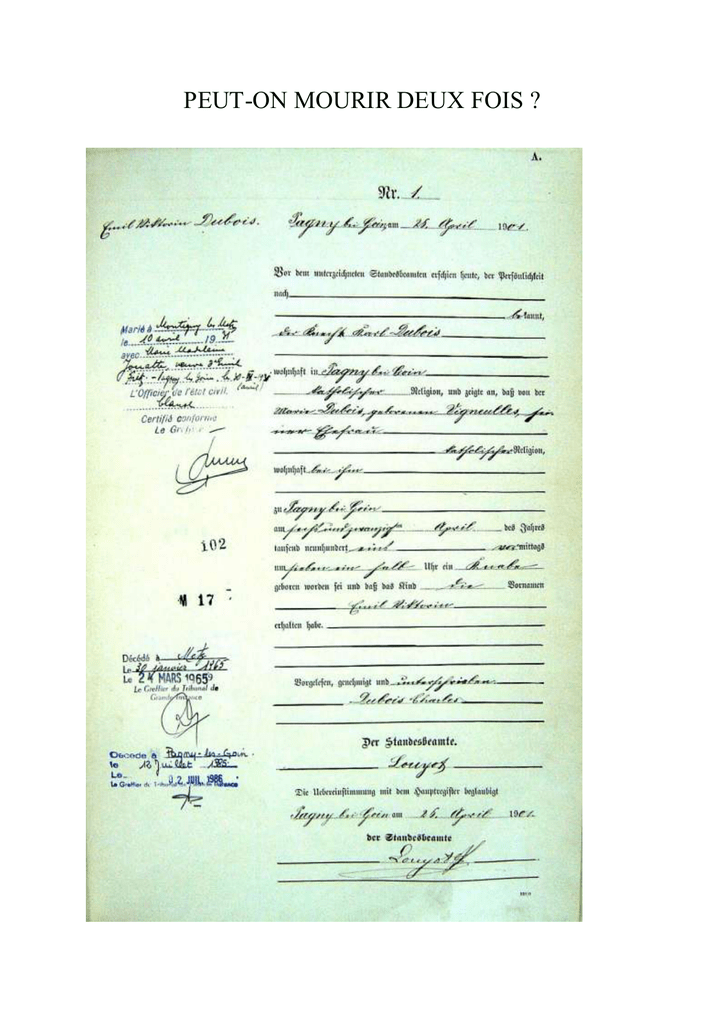 PEUT-ON MOURIR DEUX FOIS ?
A.
Nr. 1.
Emil Viktorin Dubois.
Pagny bei Goin am 26. April 1901.
Vor dem unterzeichneten Standesbeamten erschien heute, der Persönlichkeit
nach
bekannt,
der Knecht Karl Dubois
wohnhaft in Pagny bei Goin
katholischer Religion, und zeigte an, daß von der
Marie Dubois, geborenen Vigneulles, sei
ner Ehefrau
katholischer Religion,
wohnhaft bei ihm
zu Pagny bei Goin
am sechsundzwanzig April des Jahres
tausend neunhundert eins vormittags
um sieben ein halb Uhr ein Knabe
geboren worden sei und daß das Kind die Vornamen
Emil Viktorin
erhalten habe.
Vorgelesen, genehmigt und unterschrieben
Dubois Charles
Der Standesbeamte.
Louyot
Die Uebereinstimmung mit dem Hauptregister beglaubigt
Pagny bei Goin am 26. April 1901.
der Standesbeamte
Louyot
Marié à Montigny les Metz
le 10 avril 19
avec Marie Madeleine
Jouatte veuve d'Emil
L'Officier de l'état civil.
Certifié conforme
Le Greffier
102
M 17
Décédé à Metz
Le 30 janvier 1965
Le 24 MARS 1965
Le Greffier du Tribunal de
Grande Instance
Décédé à Pagny-les-Goin.
le 12 Juillet 1985
Le 02 JUIL 1986
Le Greffier du Tribunal de Grande Instance